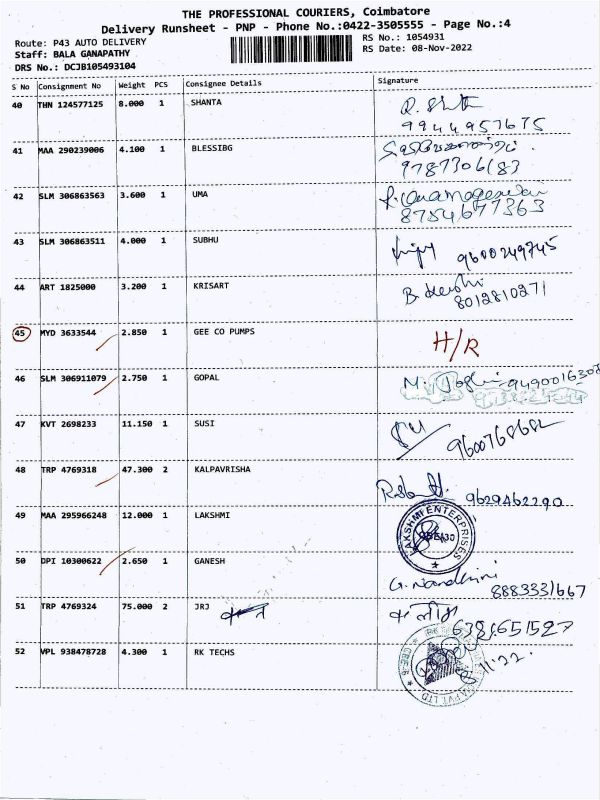 THE PROFESSIONAL COURIERS, Coimbatore
Delivery Runsheet - PNP - Phone No.:0422-3505555 - Page No.:4
Route: P43 AUTO DELIVERY
RS No.: 1054931
Staff: BALA GANAPATHY
RS Date: 08-Nov-2022
DRS No.: DCJB105493104
S No Consignment No Weight PCS Consignee Details Signature
40 THN 124577125 8.000 1 SHANTA
9944957675
41 MAA 290239006 4.100 1 BLESSIBG
9787306183
42 SLM 306863563 3.600 1 UMA
8754677363
43 SLM 306863511 4.000 1 SUBHU
9600249745
44 ART 1825000 3.200 1 KRISART
8012810271
45 MYD 3633544 2.850 1 GEE CO PUMPS H/R
46 SLM 306911079 2.750 1 GOPAL
47 KVT 2698233 11.150 1 SUSI
9600768682
48 TRP 4769318 47.300 2 KALPAVRISHA
9629462290
49 MAA 295966248 12.000 1 LAKSHMI
LAKSHMI ENTERPRISES
50 DPI 10300622 2.650 1 GANESH
G. Nandhini
8883331667
51 TRP 4769324 75.000 2 JRJ
52 VPL 938478728 4.300 1 RK TECHS